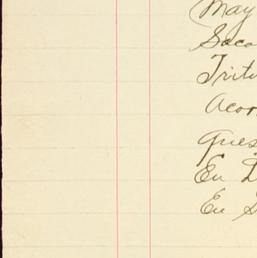 May
Saco
Tritu
acor
ques
En D
En S